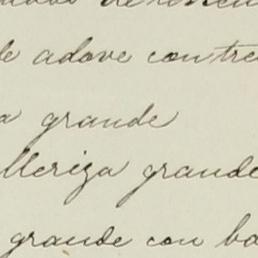 de adove con tre
a grande
lleriza grande
grande con ba